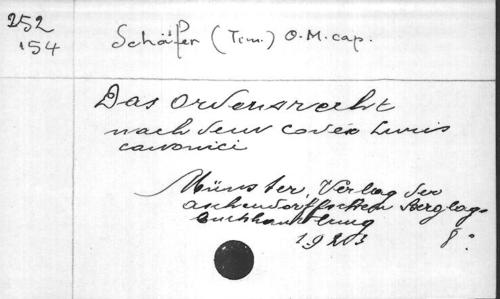 252
154
Schäfer (Tim.) O.M.cap.
Das Ordensrecht
nach dem Codex Iuris
canonici
Münster, Verlag der
aschendorffschen Verlags-
buchhandlung
1923 8°